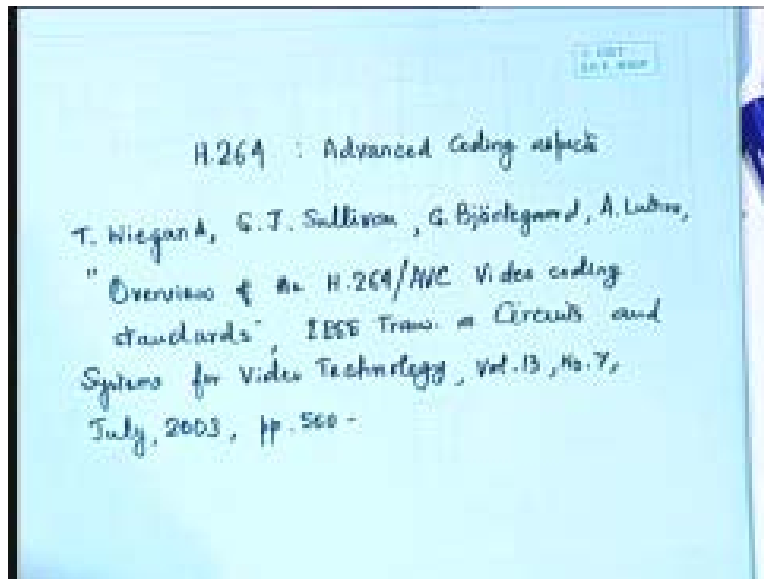 H.264 : Advanced Coding aspects
T. Wiegand, G. J. Sullivan, G. Bjontegaard, A. Luthra,
"Overview of the H.264/AVC Video coding
standards", IEEE Trans. on Circuits and
Systems for Video Technology, Vol. 13, No. 7,
July, 2003, pp. 560 -